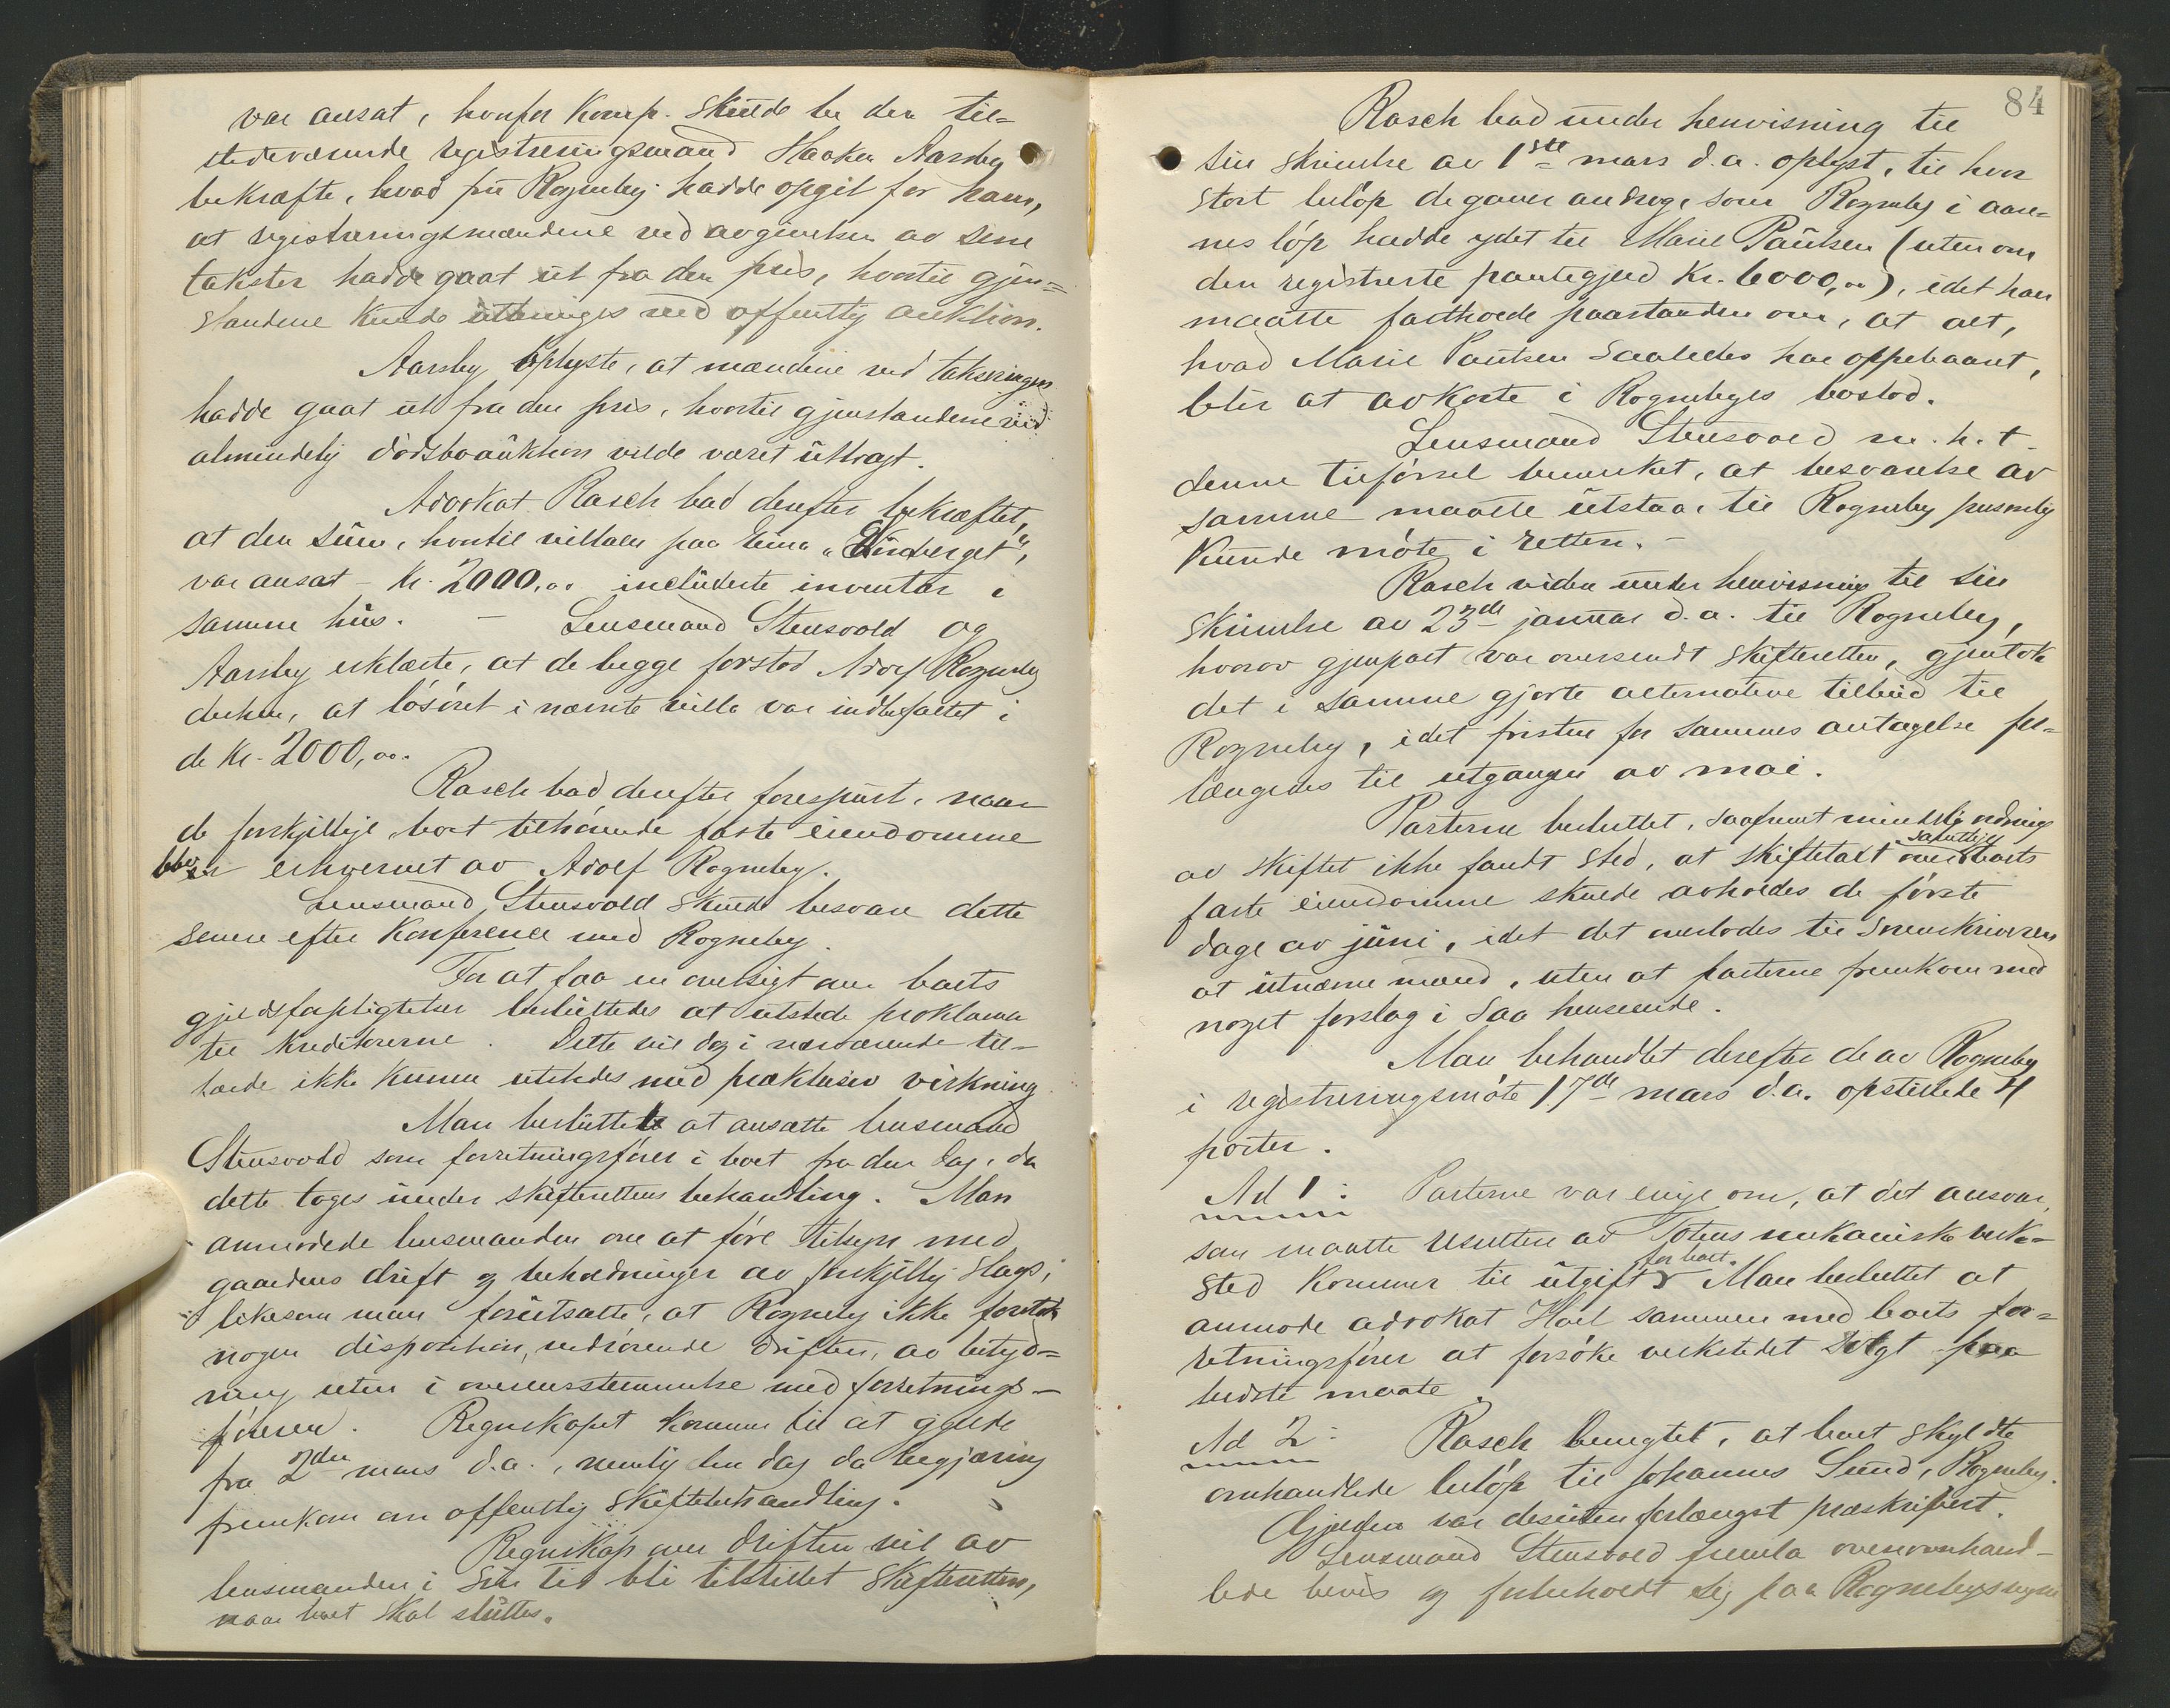 var ansat, hvorfor Komp. skulde be den til-
stedeværende registreringsmand Haakon Aarsby
bekræfte, hvad fru Rogneby hadde opgit for ham,
at registreringsmændene ved avgivelsen av sine
takster hadde gaat ut fra den pris, hvortil gjen-
standene kunde utbringes ved offentlig auktion.
Aarsby oplyste, at mændene ved takseringen
hadde gaat ut fra den pris, hvortil gjenstandene ved
almindelig dödsboauktion vilde været utbragt.
Advokat Rasch bad derefter bekræftet,
at den sum, hvortil villaen paa Eina, "Einberget",
var ansat - Kr. 2000,00 includerte inventar i
samme hus. - Lensmand Stensvold og
Aarsby erklærte, at de begge forstod Adolf Rogneby
derhen, at lösöret i nævnte villa var indbefattet i
de Kr. 2000,00.
Rasch bad derefter forespurt, naar
de forskjellige, boet tilhörende faste eiendomme
blev erhvervet av Adolf Rogneby.
Lensmand Stensvold skulde besvare dette
senere efter Konference med Rogneby.
For at faa en oversigt over boets
gjeldsforpligtelser besluttedes at utstede proklama
til kreditorerne. Dette vil dog i nærværende til-
fælde ikke kunne utstedes med præklusiv virkning.
Man besluttet at ansætte lensmand
Stensvold som forretningsförer i boet fra den dag, da
dette toges under skifterettens behandling. Man
anmodede lensmanden om at före tilsyn med
gaardens drift og beholdninger av forskjellig slags,
likesom man forutsatte, at Rogneby ikke foretok
nogen disposition, vedrörende driften, av betyd-
ning uten i overensstemmelse med forretnings-
föreren. Regnskapet kommer til at gjælde
fra 2den mars d.a., nemlig den dag da begjæring
fremkom om offentlig skiftebehandling.
Regnskap over driften vil av
lensmanden i sin tid bli tilstillet skifteretten,
naar boet skal sluttes.
84
Rasch bad under henvisning til
sin skrivelse av 1ste mars d.a. oplyst, til hvor
stort belöp de gaver androg, som Rogneby i aare-
nes löp hadde ydet til Marie Paulsen (utenom
den registrerte pantegjeld Kr. 6000,00), idet han
maatte fastholde paastanden om, at alt,
hvad Marie Paulsen saaledes har oppebaaret,
blir at avkorte i Rognebys boslod.
Lensmand Stensvold m.h.t.
denne tilförsel bemerket, at besvarelse av
samme maatte utstaa, til Rogneby personlig
kunde möte i retten. -
Rasch viden under henvisning til sin
skrivelse av 23de januar d.a. til Rogneby,
hvorav gjenpart var oversendt skifteretten, gjentok
det i samme gjorte alternative tilbud til
Rogneby, idet fristen for sammes antagelse for-
længedes til utgangen av mai.
Parterne besluttet, saafremt mindelig ordning
av skiftet ikke fandt sted, at skiftetakst over samtlige boets
faste eiendomme skulde avholdes de förste
dage av juni, idet det overlodes til Sorenskriveren
at utnævne mænd, uten at parterne fremkom med
noget forslag i saa henseende.
Man behandlet derefter de av Rogneby
i registreringsmöte 17de mars d.a. opstillede 4
poster.
Ad 1: Parterne var enige om, at det ansvar,
som maatte resultere av Totens mekaniske verk-
sted kommer til utgift for boet. Man besluttet at
anmode advokat Hoel sammen med boets for-
retningsförer at forsöke verkstedet solgt paa
bedste maate.
Ad 2: Rasch benegtet, at boet skyldte
omhandlede belöp til Johannes Sund, Rogneby.
Gjelden var desuten forlængst præskribert.
Lensmand Stensvold fremla ovenomhand-
lede bevis og forbeholdt sig paa Rognebys vegne